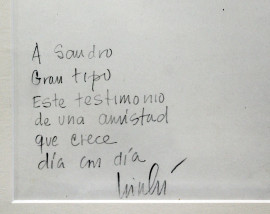 A Sandro
Gran tipo
Este testimonio
de una amistad
que crece
día con día